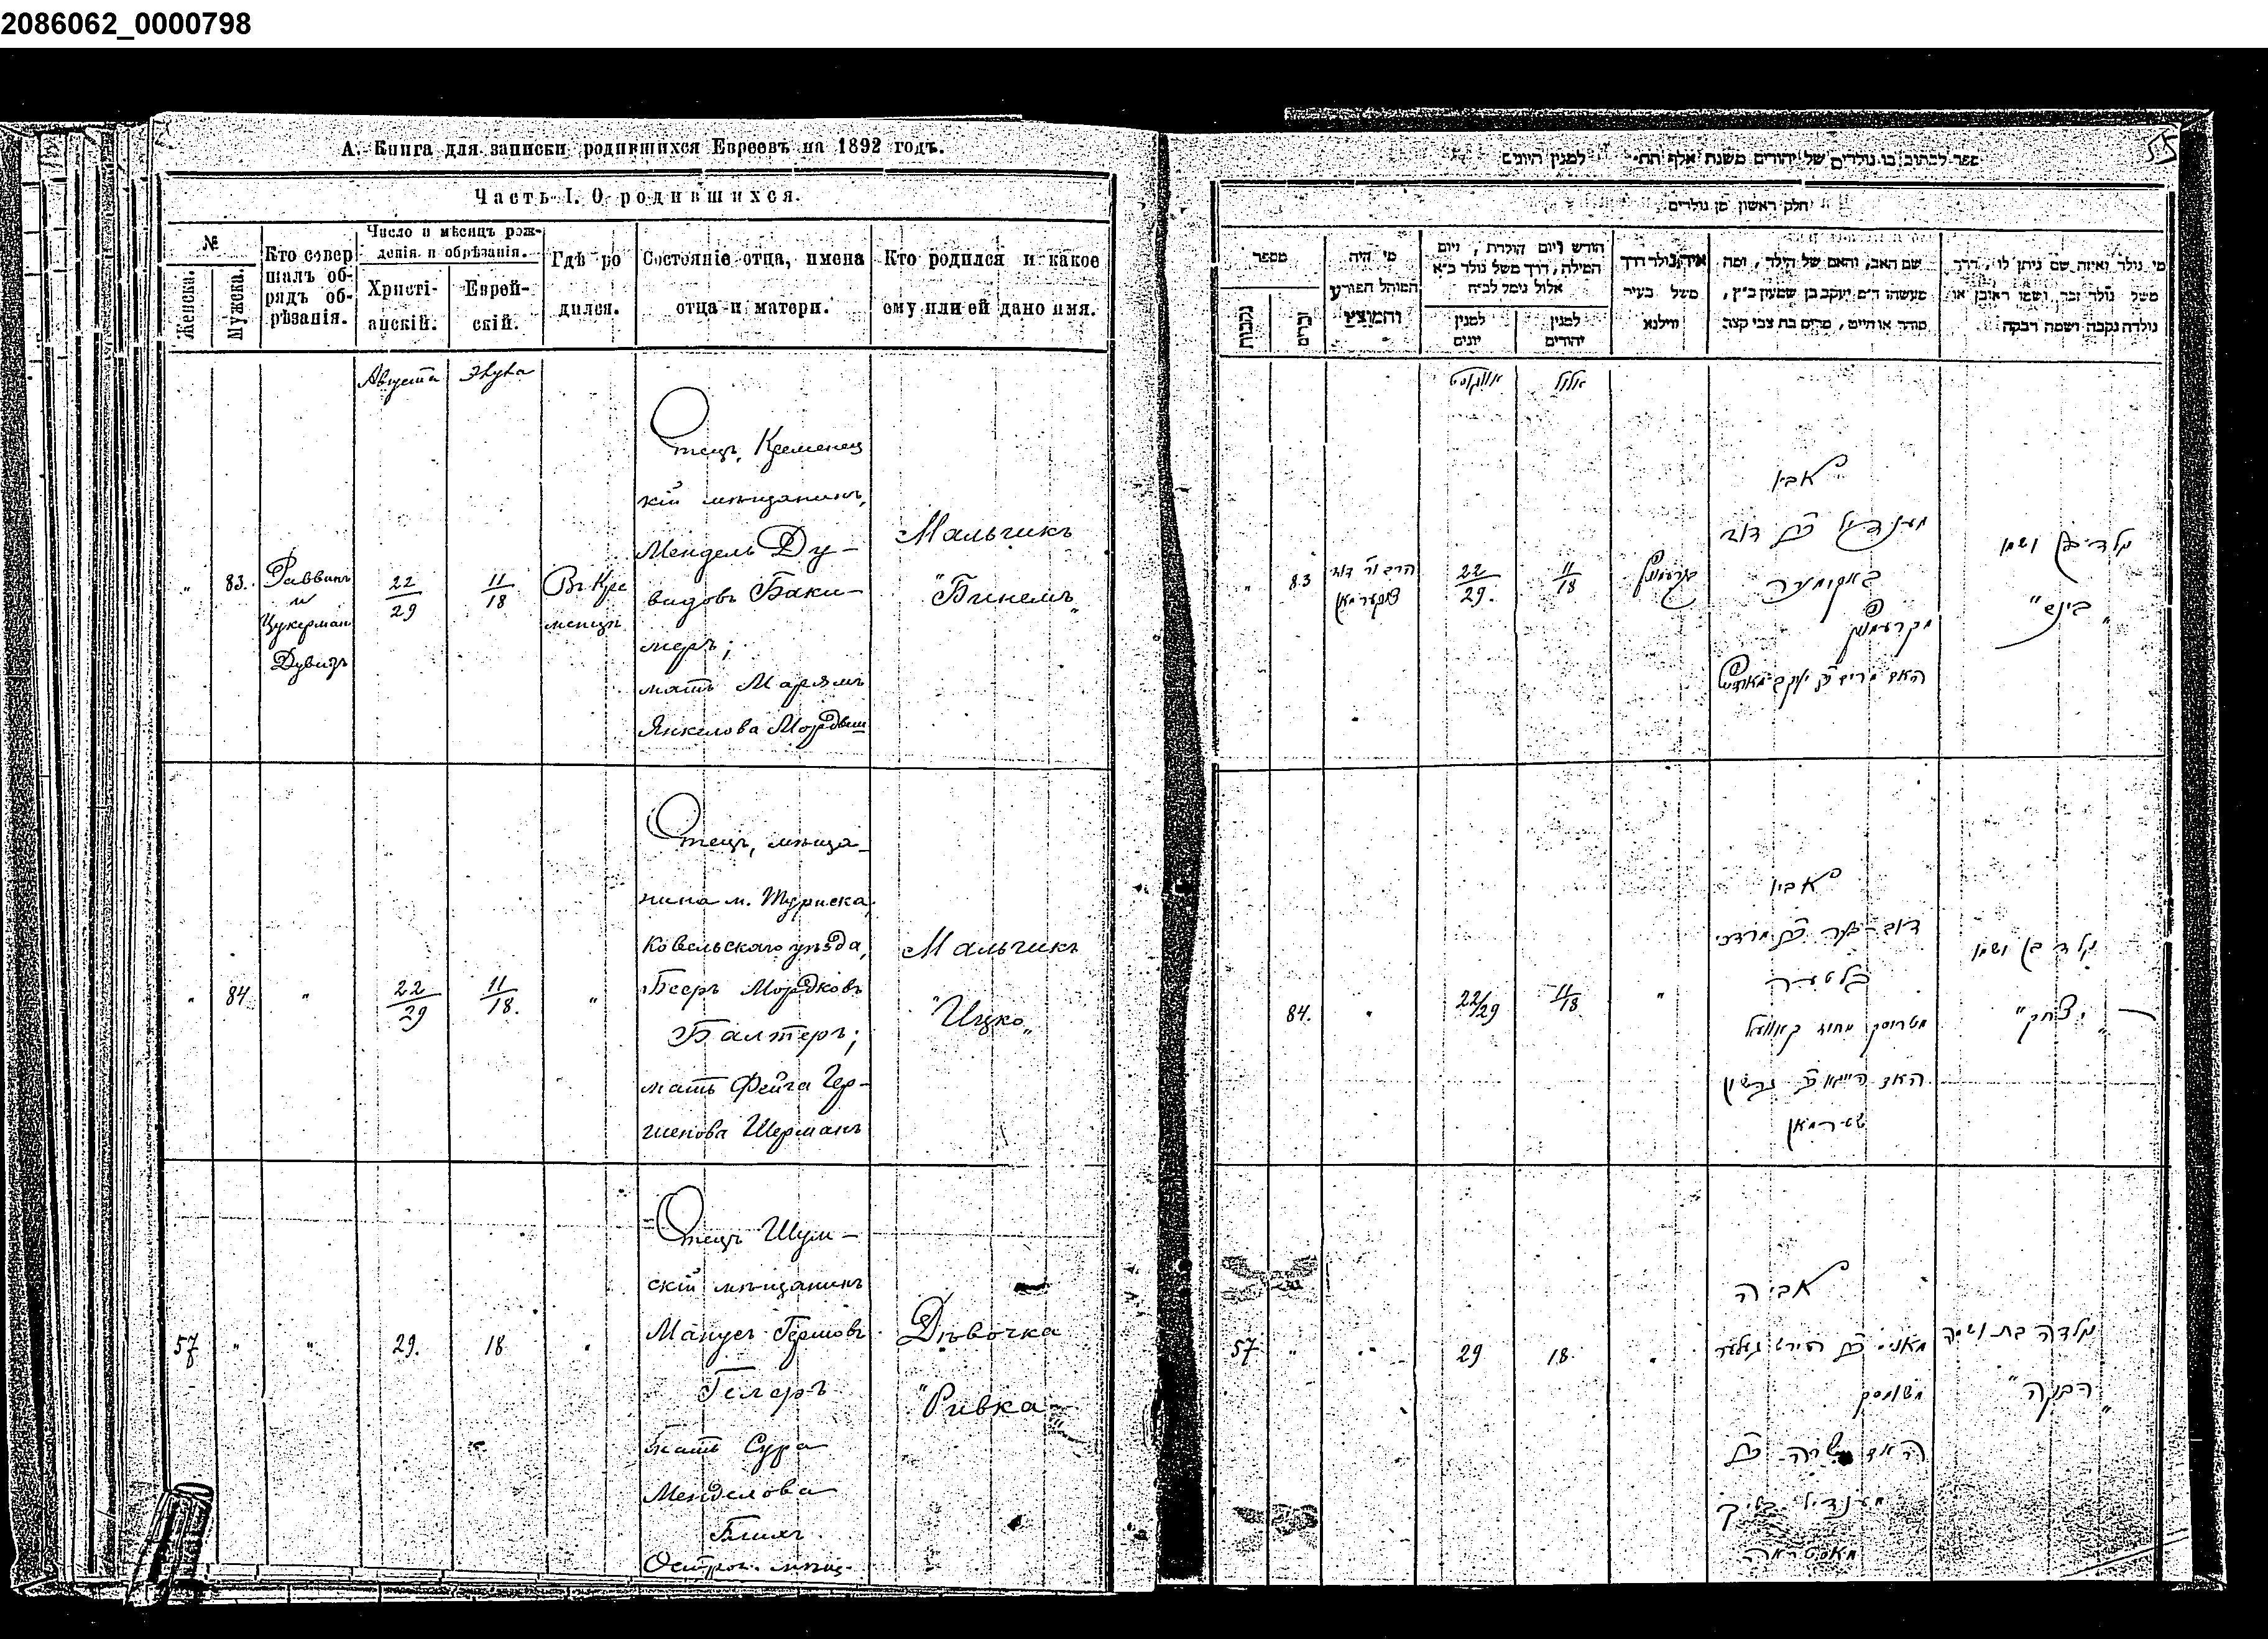 2086062_0000798
А. Книга для записки родившихся Евреевъ на 1892 годъ.
Часть I. О родившихся.
№
Женска.
Мужска.
Кто совер
шалъ об-
рядъ об-
рѣзанія.
Число и мѣсяцъ рож-
денія и обрѣзанія.
Христі-
анскій.
Еврей-
скій.
Гдѣ ро
дился.
Состояніе отца, имена
отца и матери.
Кто родился и какое
ему или ей дано имя.
Августа
Элула
"
83.
Раввинъ
и
Цукерман
Дувидъ
22
29
11
18
Въ Кре
менцѣ
Отецъ, Кременец
кій мѣщанинъ,
Мендель Ду-
видовъ Баки-
меръ;
мать Марямъ
Янкелова Мордвиш
Мальчикъ
"Бинемъ"
"
84
"
22
29
11
18.
"
Отецъ, мѣща-
нина м. Турыска,
Ковельскаго уѣзда,
Бееръ Мордковъ
Балтеръ;
мать Фейга Гер-
шенова Шерманъ
Мальчикъ
"Ицко"
57
"
"
29.
18
"
Отецъ Шум-
скій мѣщанинъ
Манусъ Гершовъ
Гелеръ
мать Сура
Менделова
Блихъ
Острог. мѣщ.
Дѣвочка
"Ривка"
55
ספר לכתוב בו נולדים של יהודים משנת אלף תת' למנין היונים
חלק ראשון מן נולדים
מספר
נקבות
זכרים
מי היה
המוהל הפורע
והמוצץ
חודש ויום הולדת, ויום
המילה, דרך משל נולד כ״א
אלול נימל לכ״ח
למנין
יונים
למנין
יהודים
איה נולד דרך
משל בעיר
ווילנא
שם האב, והאם של הילד, ומה
מעשהו ד״מ יעקב בן שמעון כ״ץ,
סוחר או חייט, מרים בת צבי קצב
מי נולד ואיזה שם ניתן לו, דרך
משל נולד זכר ושמו ראובן או
נולדה נקבה ושמה רבקה
אווגוסט
אלול
"
83
הרב ור׳ דוד
צוקערמאן
22
29.
11
18
אביו
מענדיל ב״ר דוב
באקימער
האם מרים ב״ר יעקב
נולד בן ושמו
84.
"
22/29
11
18
"
אביו
דוב בער ב״ר מרדכי
בלטער
מטריסק מחוז קאוועל
האם פייגא ב״ר גרשון
שערמאן
נולד בן ושמו
"יצחק"
57
"
"
29
18.
"
אביה
מאניס ב״ר הירש געלער
משומסק
האם שרה ב״ר
מענדיל בליך
מאסטראה
נולדה בת ושמה
"רבקה"